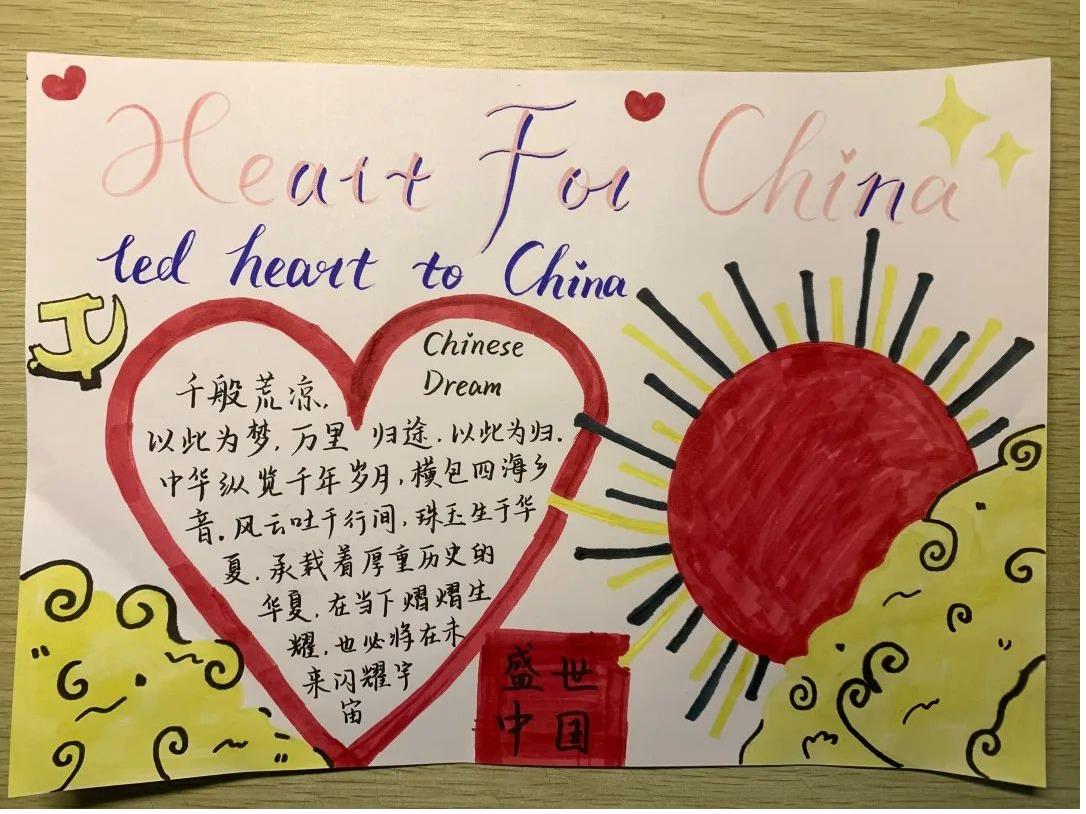 Heart For China
red heart to China
Chinese
Dream
千般荒凉,
以此为梦,万里 归途.以此为归.
中华纵览千年岁月,横包四海乡
音.风云吐于行间,珠玉生于华
夏.承载着厚重历史的
华夏.在当下熠熠生
耀,也必将在未
来闪耀宇
宙
盛世
中国